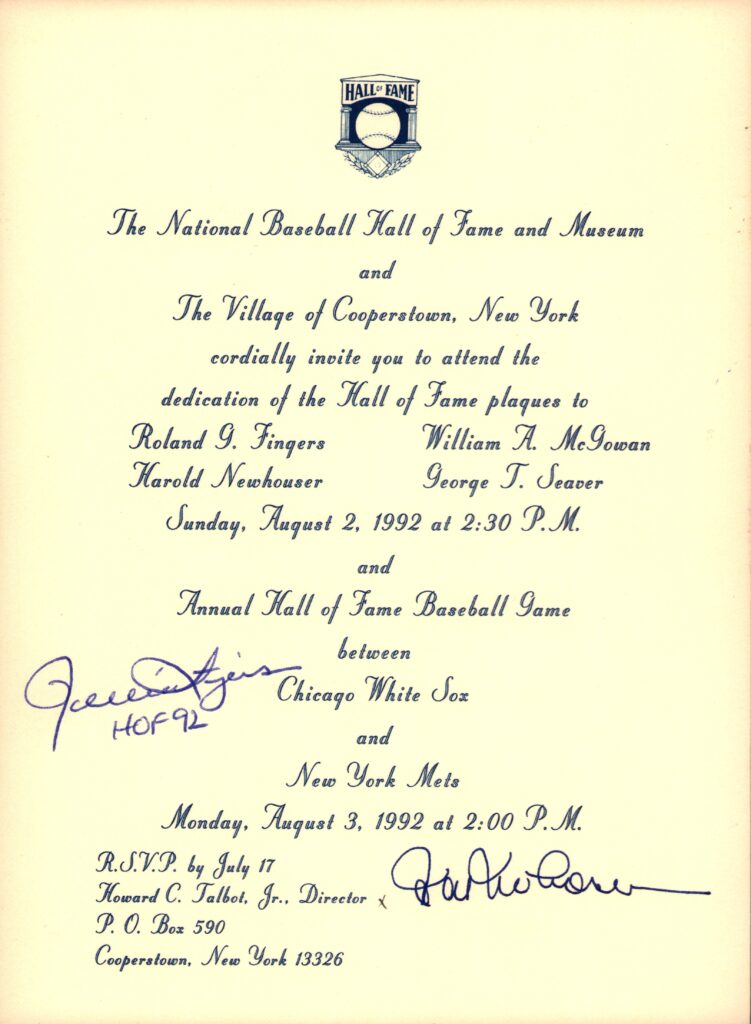 HALL OF FAME
The National Baseball Hall of Fame and Museum
and
The Village of Cooperstown, New York
cordially invite you to attend the
dedication of the Hall of Fame plaques to
Roland G. Fingers William A. McGowan
Harold Newhouser George T. Seaver
Sunday, August 2, 1992 at 2:30 P.M.
and
Annual Hall of Fame Baseball Game
between
Chicago White Sox
HOF 92
and
New York Mets
Monday, August 3, 1992 at 2:00 P.M.
R.S.V.P. by July 17
Howard C. Talbot, Jr., Director x
P. O. Box 590
Cooperstown, New York 13326